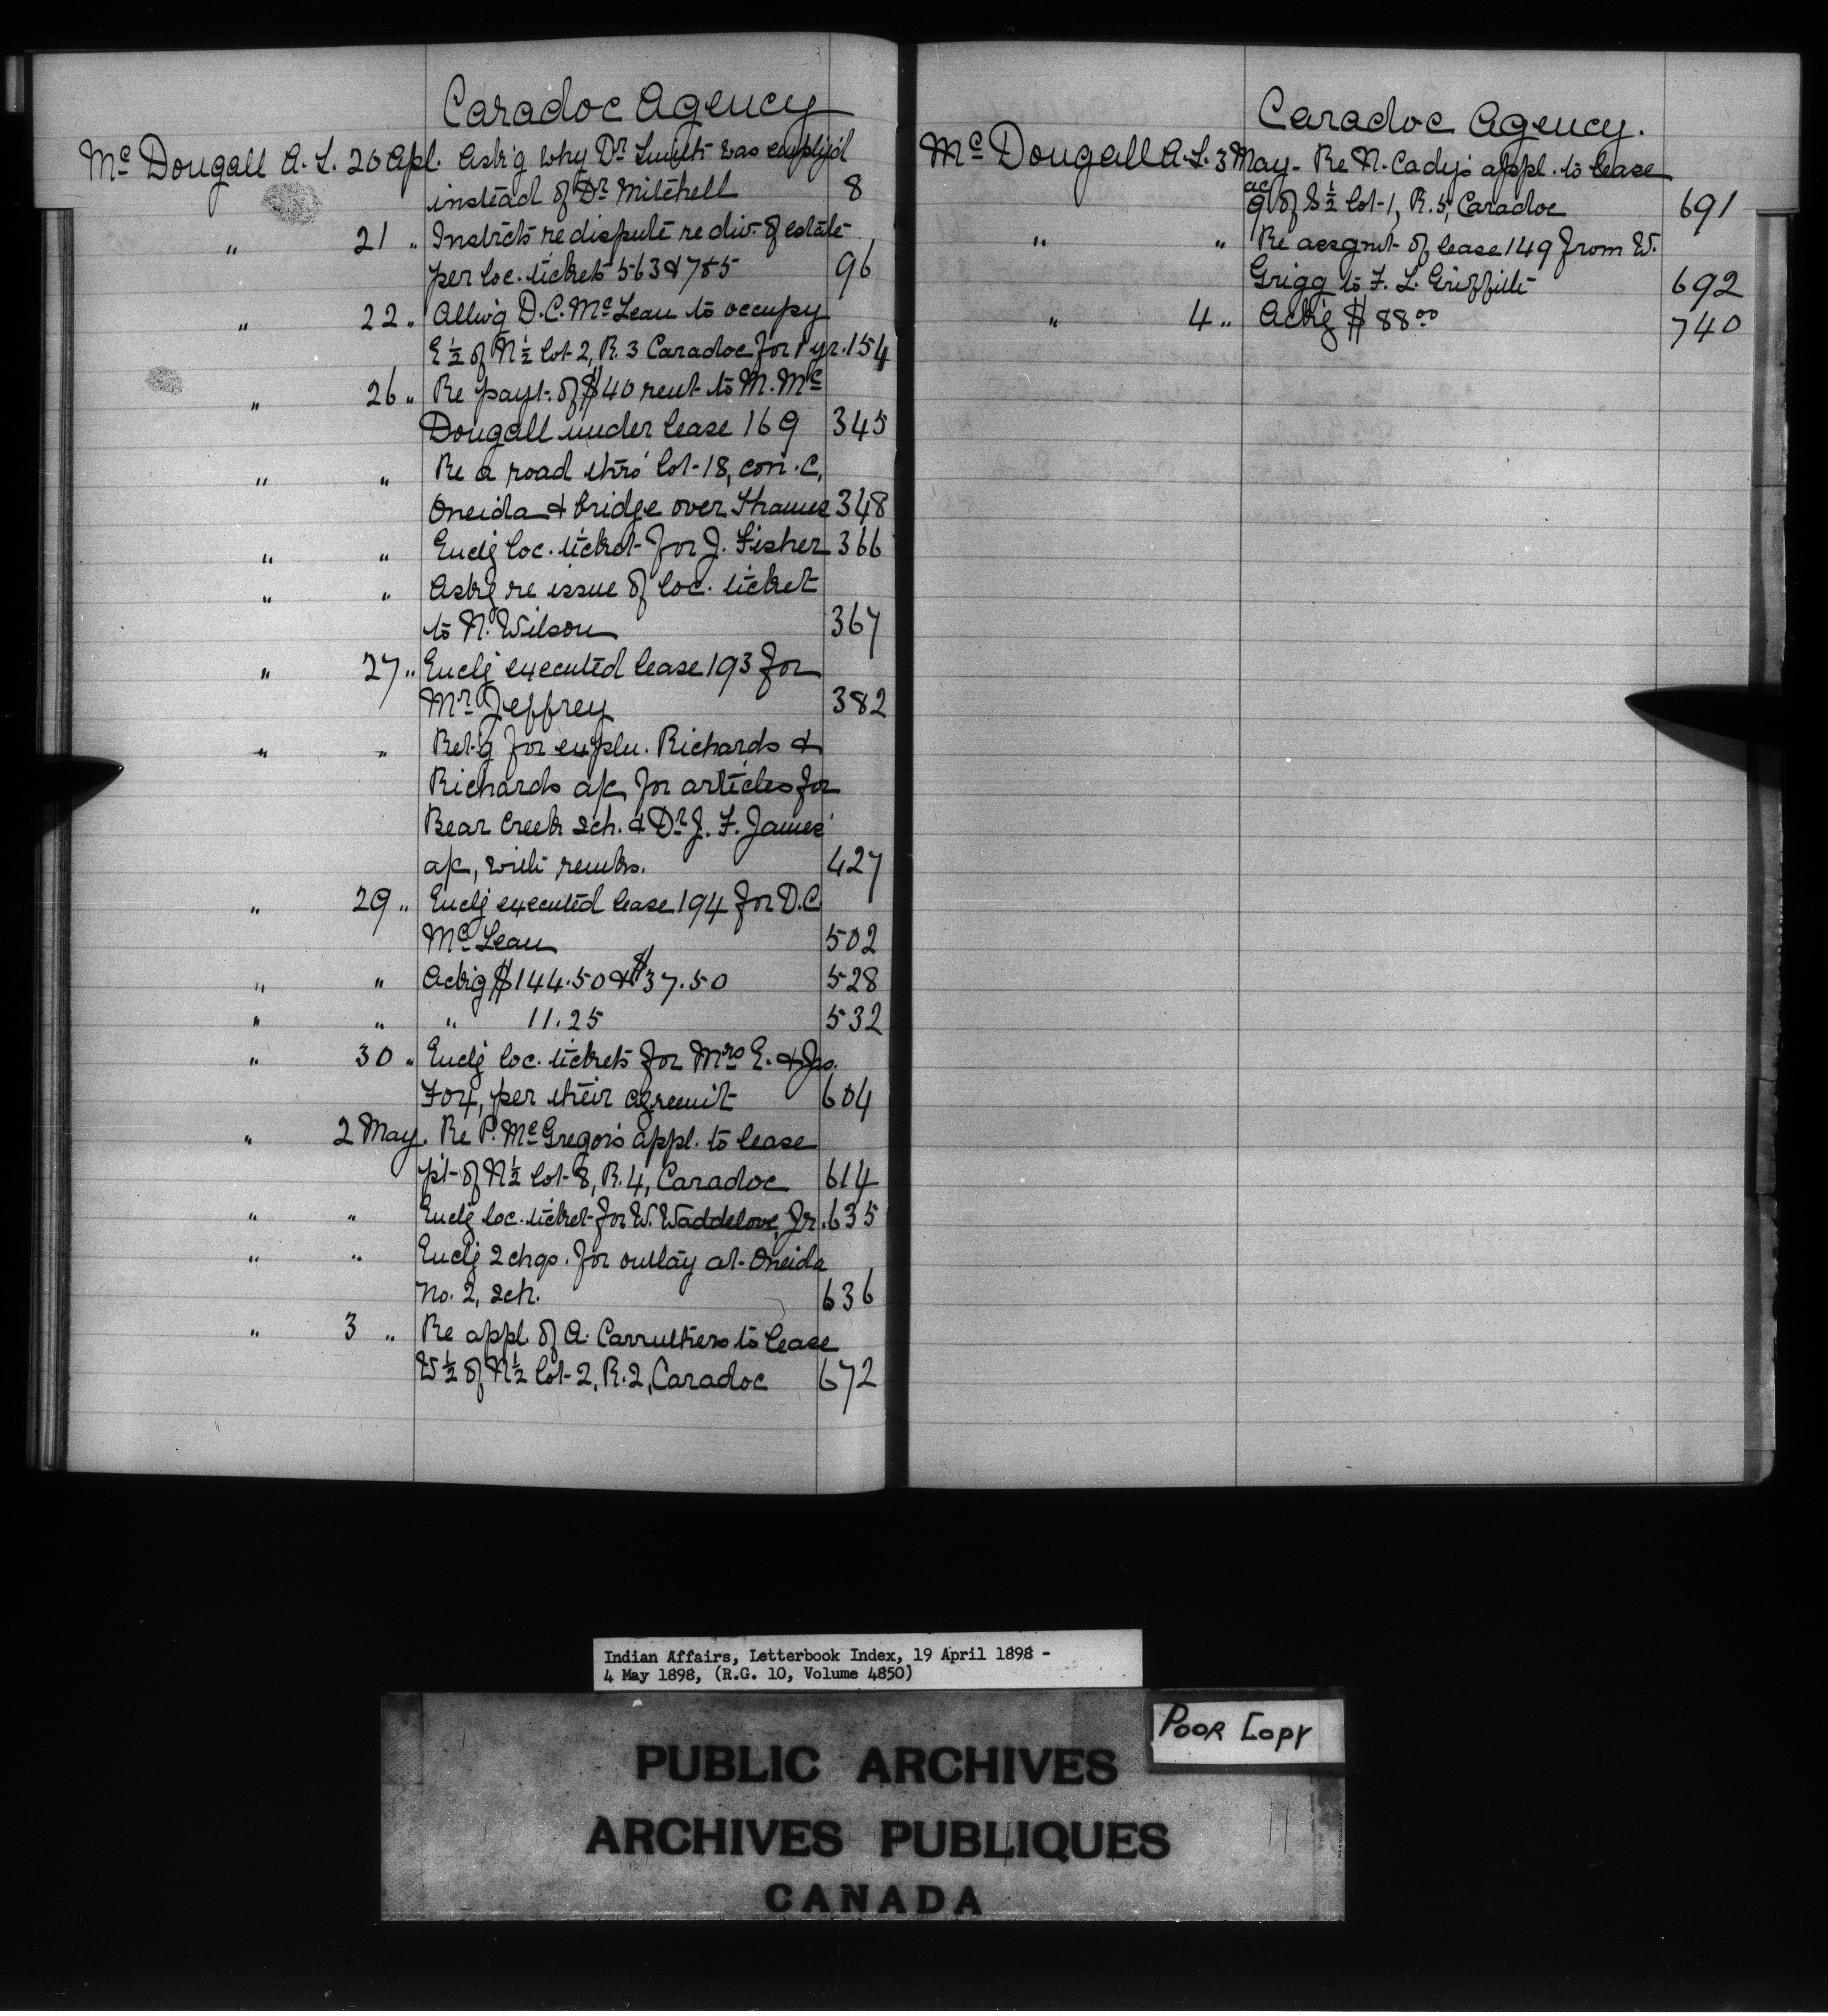 Caradoc Agency
Mc Dougall A. L. 20 Apl. Ask'g why Dr Smith was employ'd
instead of Dr Mitchell 8
" 21 " Instrcts re dispute re div. of estate
per loc. tickets 563 & 785 96
" 22 " Allw'g D. C. Mc Lean to occupy
E ½ of N ½ lot 2, R. 3 Caradoc for 1 yr. 154
" 26 " Re payt. of $40 rent to M. Mc
Dougall under lease 169 345
" " Re a road thro' lot 18, con. C,
Oneida & bridge over Thames 348
" " Enclg loc. ticket for J. Fisher 366
" " Askg re issue of loc. ticket
to N. Wilson 367
" 27 " Enclg executed lease 193 for
Mr Jeffrey 382
" " Ret'g for expln. Richards &
Richards a/c for articles for
Bear Creek sch. & Dr J. F. James'
a/c, with remks. 427
" 29 " Enclg executed lease 194 for D. C
Mc Lean 502
" " Ackg $144.50 & $37.50 528
" " " 11.25 532
" 30 " Enclg loc. tickets for Mrs E. & Jas.
Fox, per their agreem't 604
" 2 May. Re P. McGregor's appl. to lease
pt of N ½ lot 8, R. 4, Caradoc 614
" " Enclg loc. ticket for W. Waddelove, Jr. 635
" " Enclg 2 chqs. for outlay at Oneida
No. 2, sch. 636
" 3 " Re appl. of A. Carruthers to lease
W ½ of N ½ lot 2, R. 2, Caradoc 672
Caradoc Agency.
Mc Dougall A. L. 3 May - Re N. Cady's appl. to lease
9 ac of S ½ lot 1, R. 5, Caradoc 691
" " Re assgmt of lease 149 from W.
Grigg to F. L. Griffith 692
" 4 " Ackg $88.00 740
Indian Affairs, Letterbook Index, 19 April 1898 -
4 May 1898, (R.G. 10, Volume 4850)
POOR COPY
PUBLIC ARCHIVES
ARCHIVES PUBLIQUES
CANADA